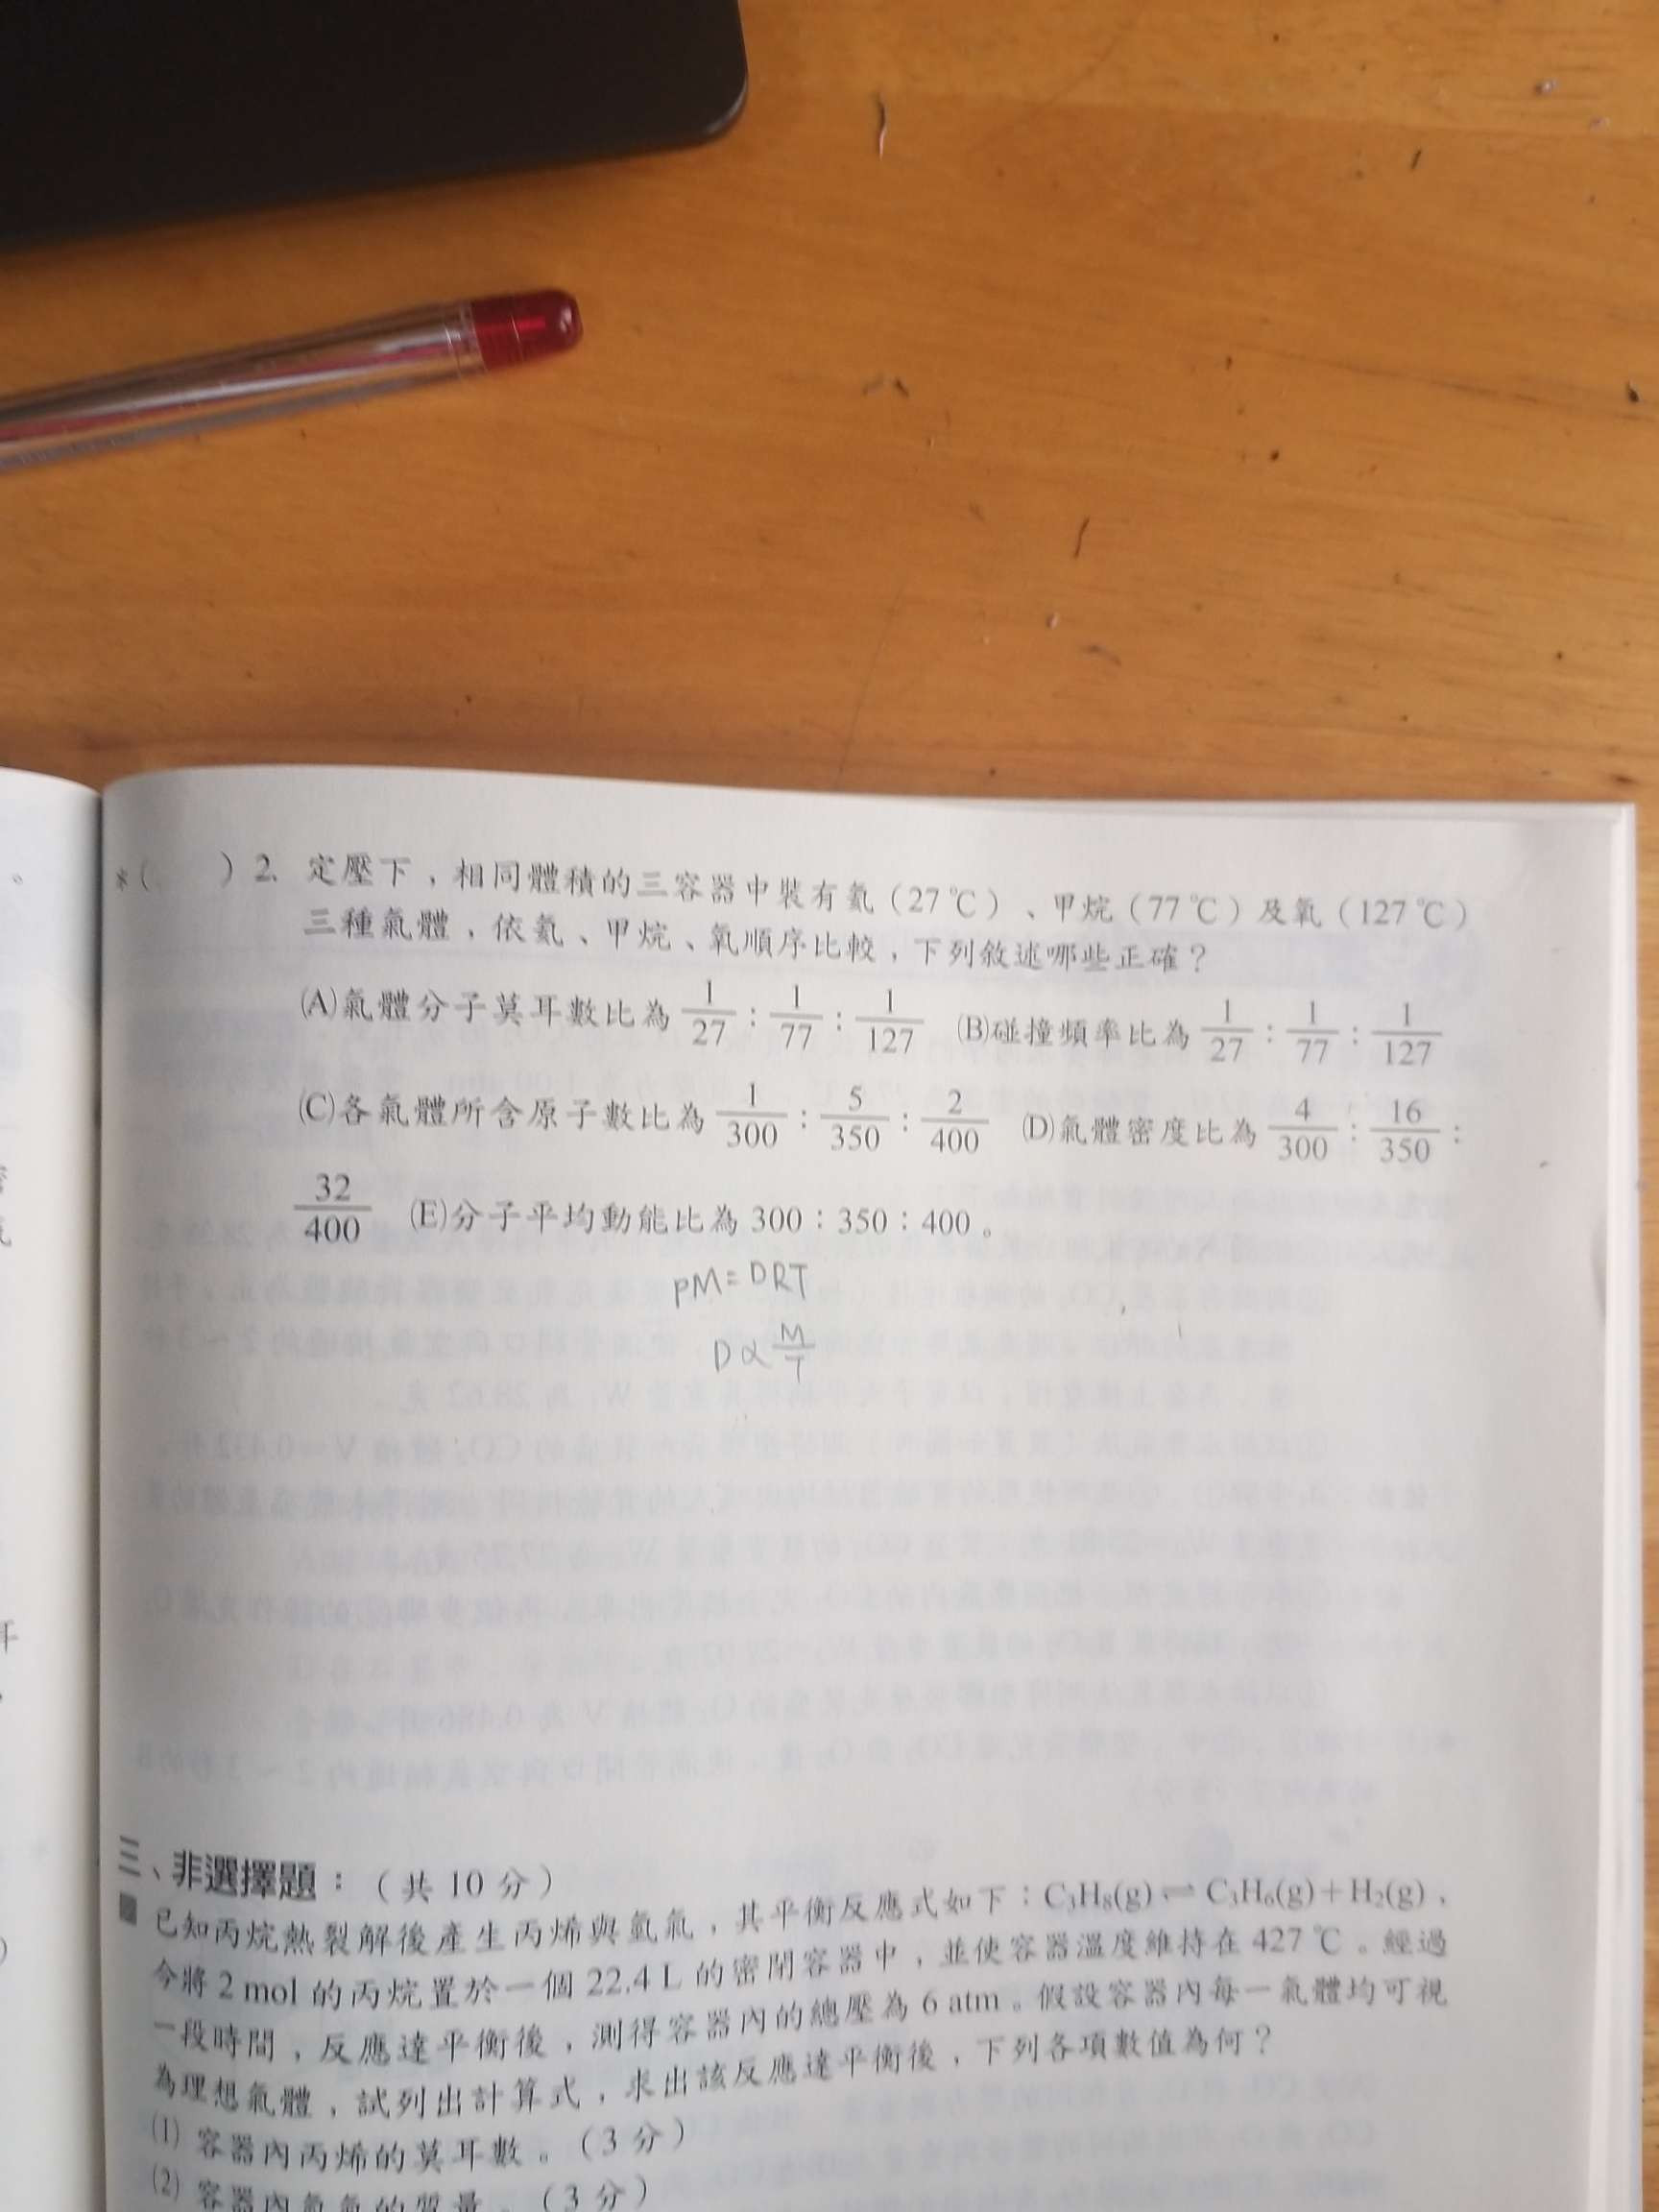 *( ) 2. 定壓下，相同體積的三容器中裝有氦（27℃）、甲烷（77℃）及氧（127℃）
三種氣體，依氦、甲烷、氧順序比較，下列敘述哪些正確？
(A)氣體分子莫耳數比為 1/27：1/77：1/127 (B)碰撞頻率比為 1/27：1/77：1/127
(C)各氣體所含原子數比為 1/300：5/350：2/400 (D)氣體密度比為 4/300：16/350：
32/400 (E)分子平均動能比為 300：350：400。
PM=DRT
D∝M/T
三、非選擇題：（共 10 分）
已知丙烷熱裂解後產生丙烯與氫氣，其平衡反應式如下：C₃H₈(g) ⇌ C₃H₆(g)＋H₂(g)，
今將 2 mol 的丙烷置於一個 22.4 L 的密閉容器中，並使容器溫度維持在 427℃。經過
一段時間，反應達平衡後，測得容器內的總壓為 6 atm。假設容器內每一氣體均可視
為理想氣體，試列出計算式，求出該反應達平衡後，下列各項數值為何？
(1) 容器內丙烯的莫耳數。（3 分）
(2) 容器內氫氣的質量。（3 分）